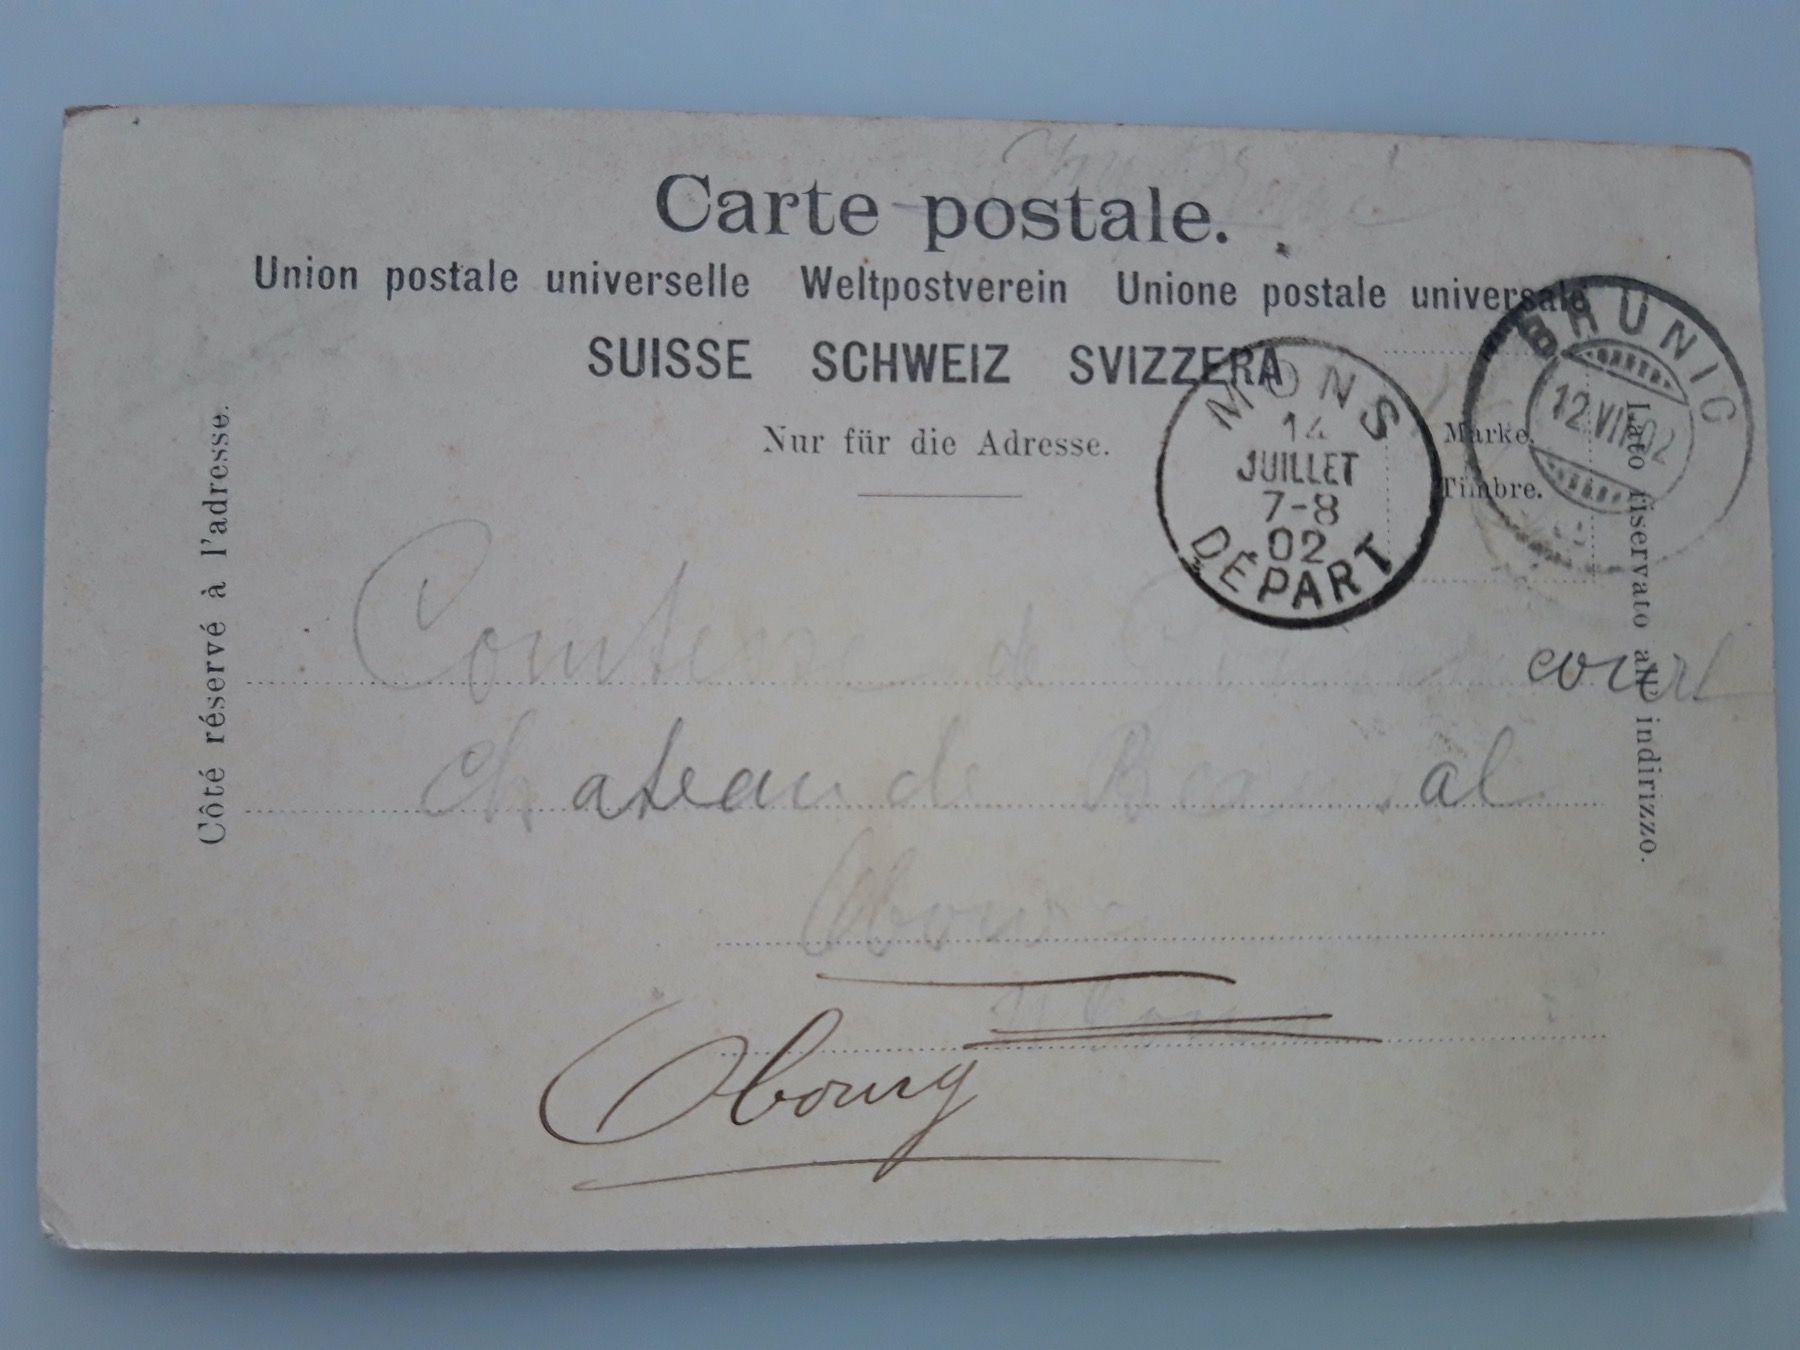 Carte postale.
Union postale universelle Weltpostverein Unione postale universale
SUISSE SCHWEIZ SVIZZERA
Nur für die Adresse.
Côté réservé à l'adresse.
Lato riservato all' indirizzo.
Marke.
Timbre.
BRUNIG
12 VII 02
MONS
14
JUILLET
7-8
02
DÉPART
Comtesse de
Chateau de
Obourg
Mons
Obourg